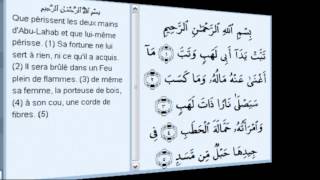 بِسْمِ اللَّهِ الرَّحْمَٰنِ الرَّحِيمِ
Que périssent les deux mains
d'Abu-Lahab et que lui-même
périsse. (1) Sa fortune ne lui
sert à rien, ni ce qu'il a acquis.
(2) Il sera brûlé dans un Feu
plein de flammes. (3) de même
sa femme, la porteuse de bois,
(4) à son cou, une corde de
fibres. (5)
بِسْمِ اللَّهِ الرَّحْمَٰنِ الرَّحِيمِ
تَبَّتْ يَدَآ أَبِى لَهَبٍ وَتَبَّ ۝١ مَآ
أَغْنَىٰ عَنْهُ مَالُهُۥ وَمَا كَسَبَ ۝٢
سَيَصْلَىٰ نَارًا ذَاتَ لَهَبٍ ۝٣
وَٱمْرَأَتُهُۥ حَمَّالَةَ ٱلْحَطَبِ ۝٤ فِى
جِيدِهَا حَبْلٌ مِّن مَّسَدٍۭ ۝٥